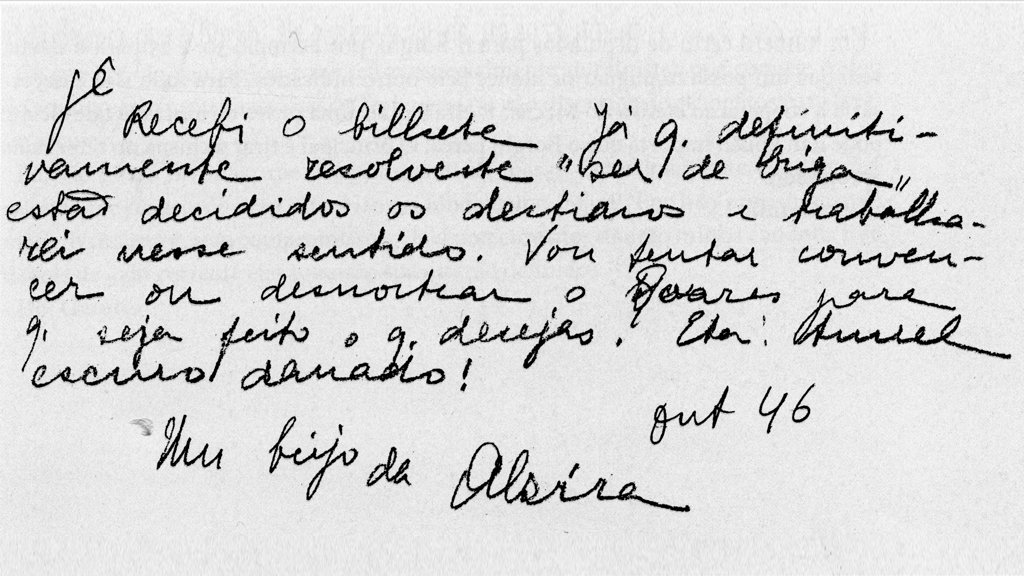 Gê
Recebi o bilhete Já q. definiti-
vamente resolveste "ser de briga"
estão decididos os destinos e trabalha-
rei nesse sentido. Vou tentar conven-
cer ou desnortear o Soares para
q. seja feito o q. desejas. Eta! tunel
escuro danado!
out 46
Um beijo da Alzira